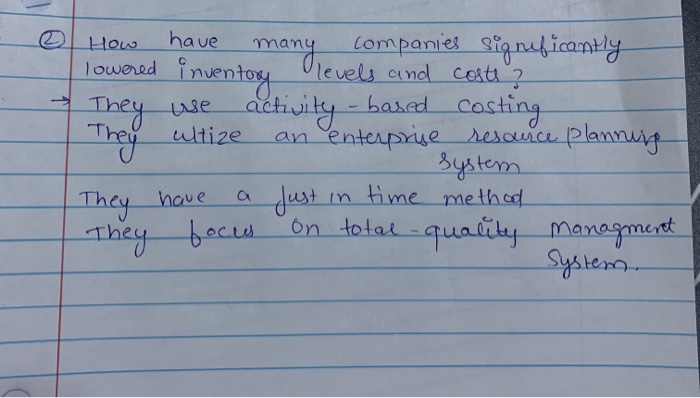 ② How have many companies significantly
lowered inventory levels and costs?
→ They use activity-based costing
They ultize an enterprise resource planning
system
They have a Just in time method
They focus on total-quality managment
System.